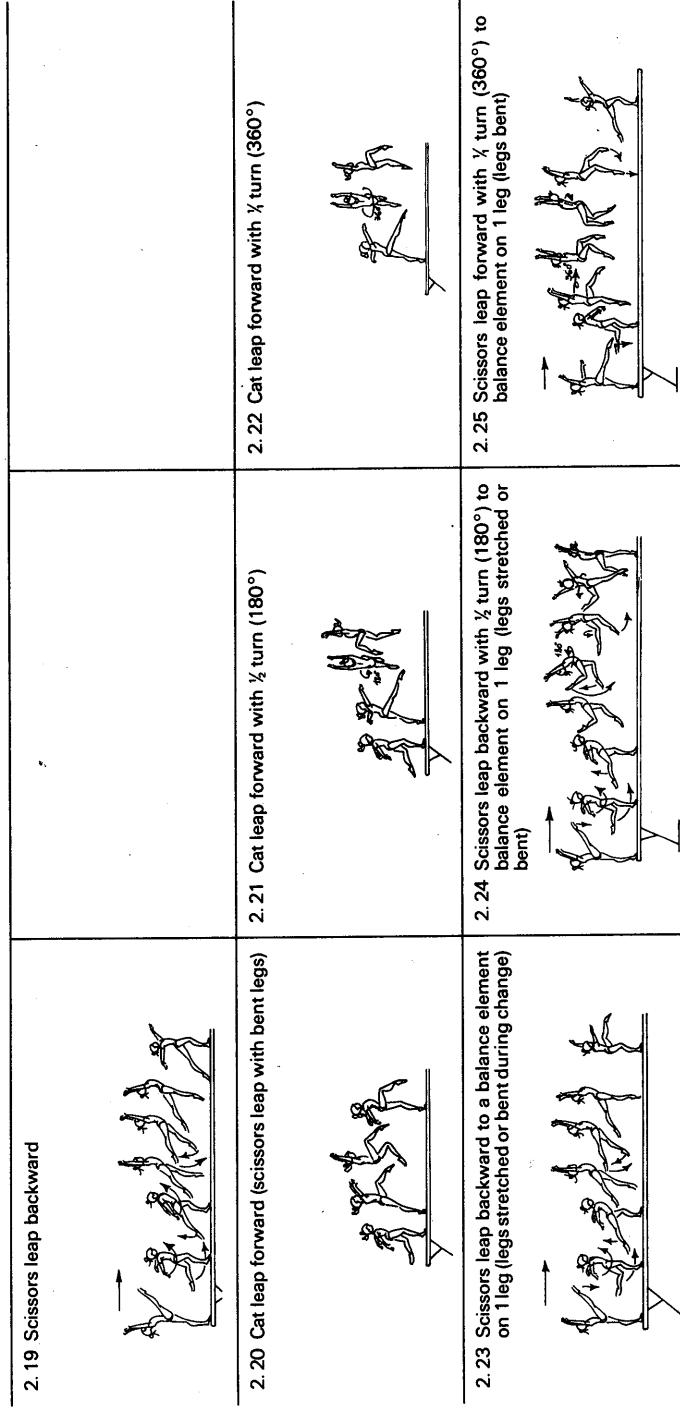 2.19 Scissors leap backward
2.20 Cat leap forward (scissors leap with bent legs)
2.21 Cat leap forward with ½ turn (180°)
180
2.22 Cat leap forward with 1/1 turn (360°)
360
2.23 Scissors leap backward to a balance element
on 1 leg (legs stretched or bent during change)
2.24 Scissors leap backward with ½ turn (180°) to
balance element on 1 leg (legs stretched or
bent)
180
2.25 Scissors leap forward with 1/1 turn (360°) to
balance element on 1 leg (legs bent)
360